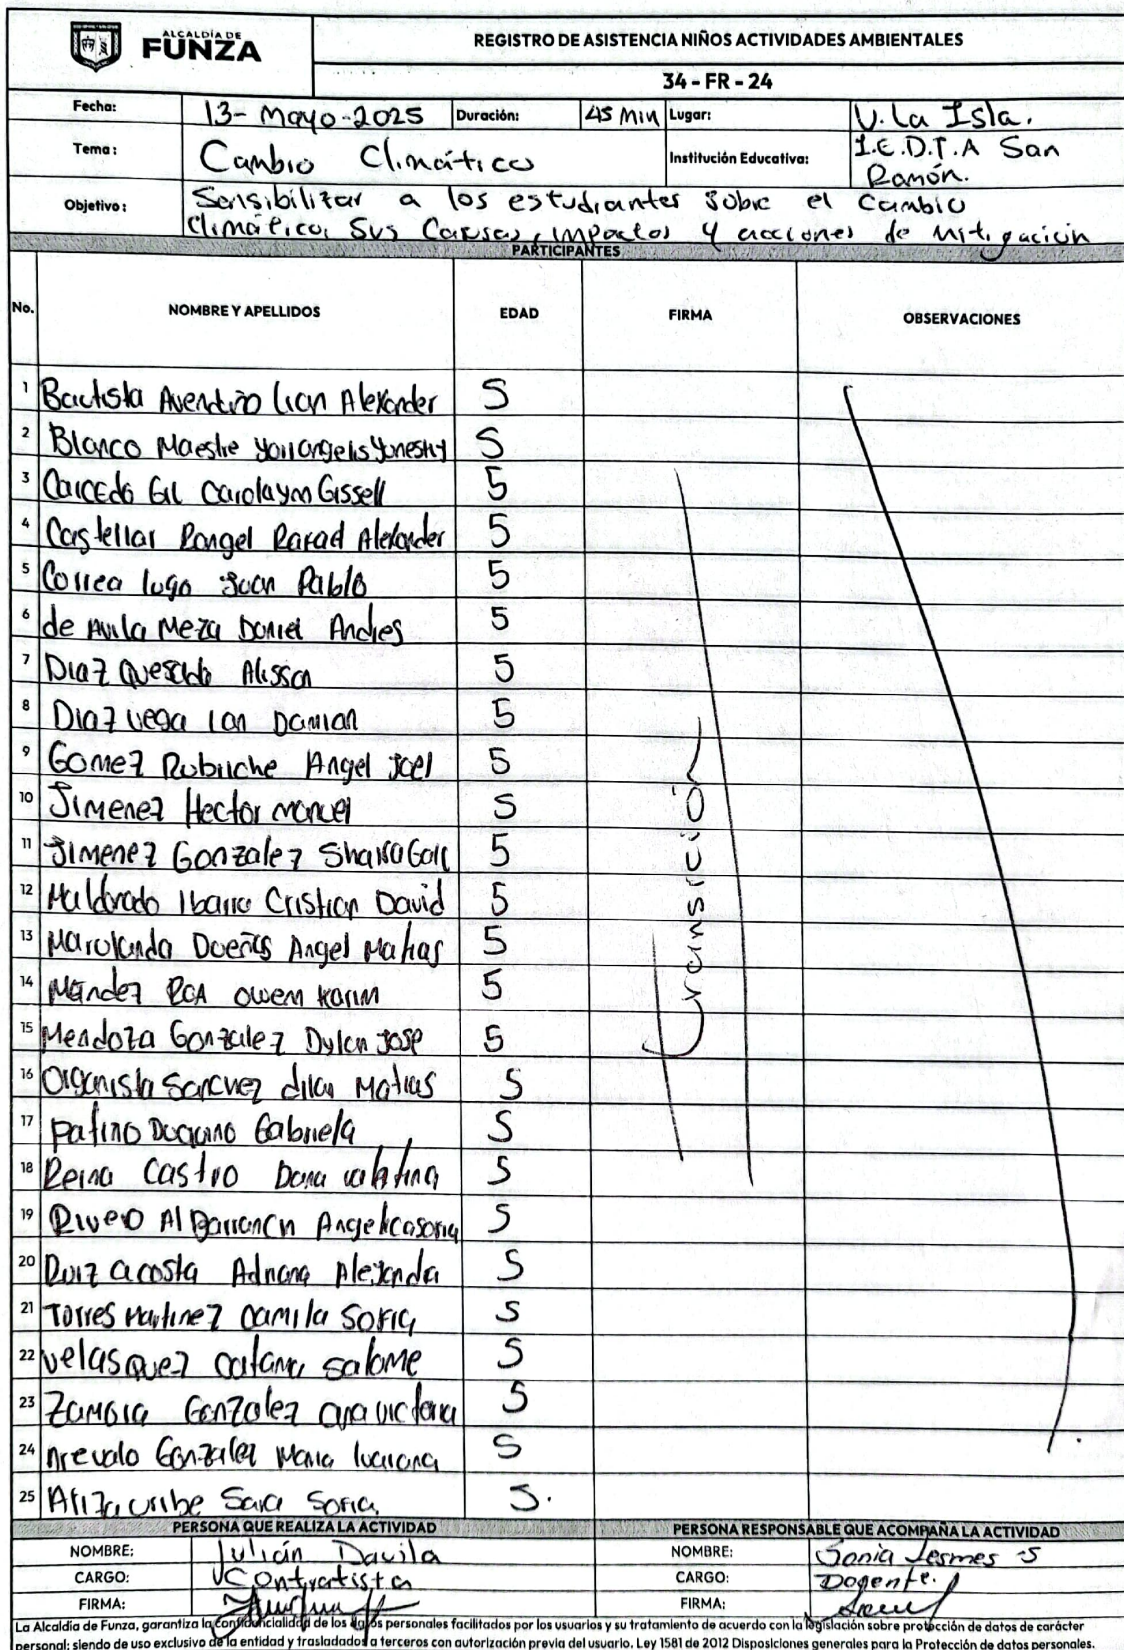 ALCALDÍA DE
FUNZA
REGISTRO DE ASISTENCIA NIÑOS ACTIVIDADES AMBIENTALES
34 - FR - 24
Fecha: 13- Mayo-2025 Duración: 45 Min Lugar: V. La Isla.
Tema: Cambio Climático Institución Educativa: I.E.D.T.A San
Ramón.
Objetivo: Sensibilizar a los estudiantes sobre el cambio
climático, sus causas, impactos y acciones de mitigación
PARTICIPANTES
No. NOMBRE Y APELLIDOS EDAD FIRMA OBSERVACIONES
1 Bautista Avendaño Lian Alexander 5
2 Blanco Maestre 5
3 Caicedo Gil Carolaym Gissell 5
4 Castellar Rangel Rafael Alexander 5
5 Correa lugo Juan Pablo 5
6 de Avila Meza Daniel Andres 5
7 Diaz Quesada Alisson 5
8 Diaz vega Ian Damian 5
9 Gomez Rubiche Angel Joel 5
10 Jimenez Hector manuel 5
11 Jimenez Gonzalez 5
12 Maldonado Ibarra Cristian David 5
13 Marulanda Dueñas Angel Matias 5
14 Méndez Owem Karim 5
15 Mendoza Gonzalez Dylan Jose 5
16 Organista Sanchez dilan Matias 5
17 Patino Gabriela 5
18 Reina Castro Dana valentina 5
19 Rivero Albarrancin Angelica sofia 5
20 Ruiz acosta Adriana Alejandra 5
21 Torres Martinez Camila Sofia 5
22 velasquez catana salome 5
23 Zambra Gonzalez ana victoria 5
24 Arevalo Gonzalez Maria luciana 5
25 Ariza uribe Sara Sofia. 5.
transición
PERSONA QUE REALIZA LA ACTIVIDAD PERSONA RESPONSABLE QUE ACOMPAÑA LA ACTIVIDAD
NOMBRE: Julián Davila NOMBRE: Sonia Lesmes S
CARGO: Contratista CARGO: Docente.
FIRMA: FIRMA:
La Alcaldía de Funza, garantiza la confidencialidad de los datos personales facilitados por los usuarios y su tratamiento de acuerdo con la legislación sobre protección de datos de carácter
personal; siendo de uso exclusivo de la entidad y trasladados a terceros con autorización previa del usuario, Ley 1581 de 2012 Disposiciones generales para la Protección de datos personales.